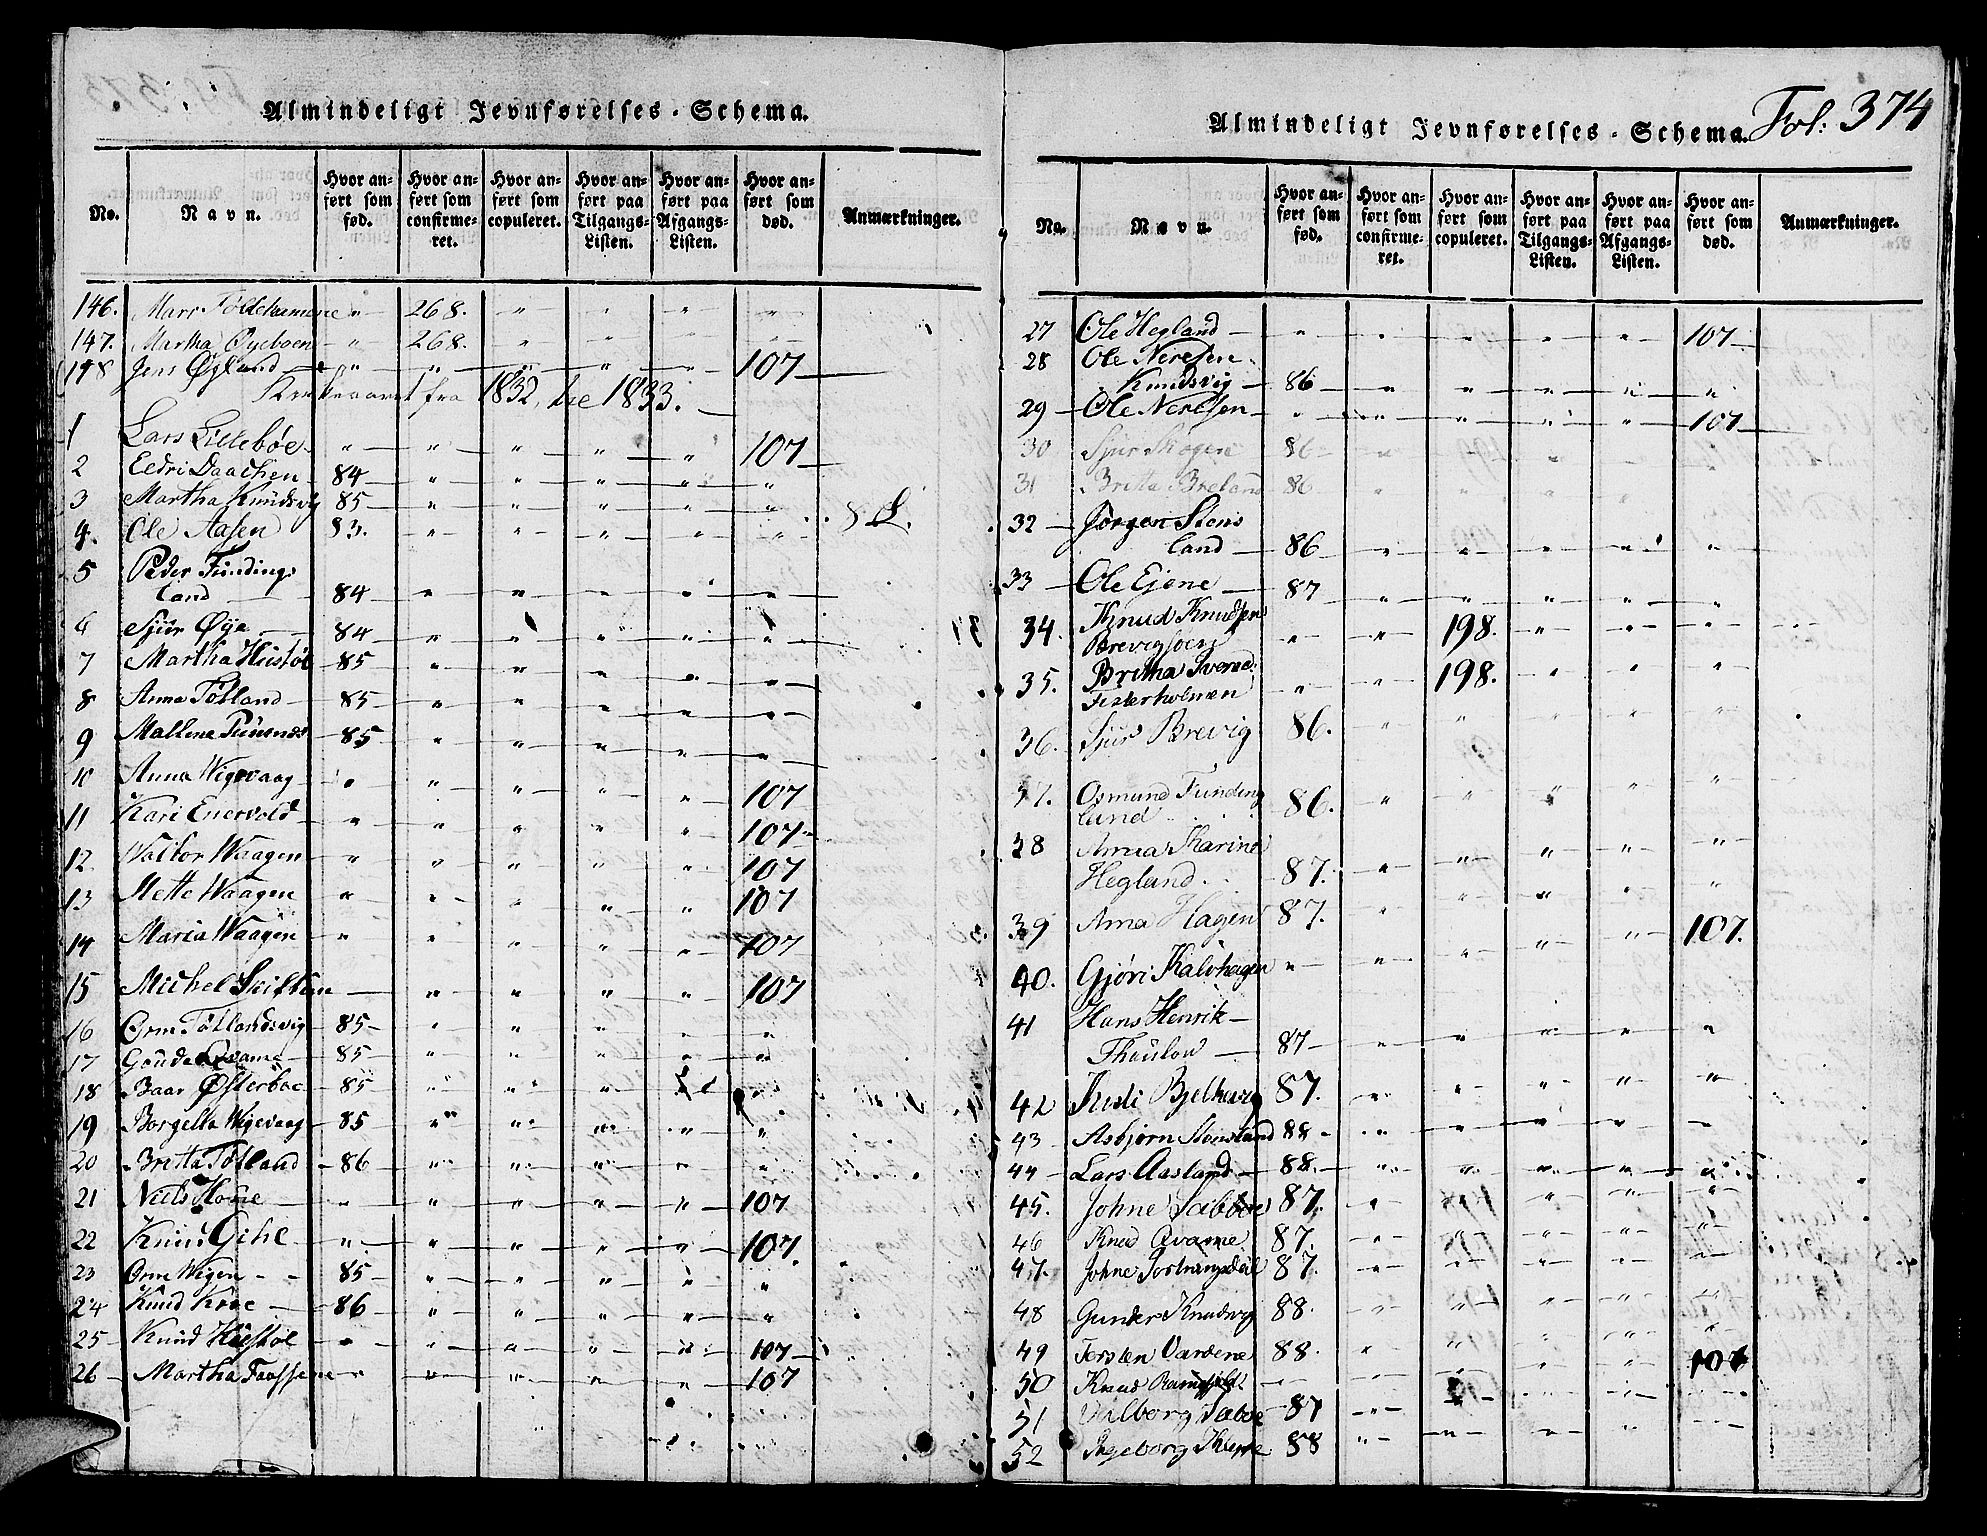 Almindeligt Jevnførelses-Schema.
No. Navn. Hvor anført som fød. Hvor anført som confirmeret. Hvor anført som copuleret. Hvor anført paa Tilgangs-Listen. Hvor anført paa Afgangs-Listen. Hvor anført som død. Anmærkninger.
146. 268.
147. Martha Øyeboen 268.
148 Jens Øgland 107
Kirkeaaret fra 1832 til 1833.
1 Lars Lillebøe 107
2 Eldri 84
3 Martha Knudsvig 85
4. Ole Aasen 83.
5 Peder Fundings
land 84
6 Sjur Øye 84
7 Martha Hustøl 85
8 Anna Tøtland 85
9 Mallene 85
10 Anna Wigevaag 107
11 Kari Enervold 107
12 Waagen 107
13 Mette Waagen 107
14 Maria Waagen 107
15 Michel Skiftun 107
16 Orm Tøtlandsvig 85
17 Gouda Qvame 85
18 Baar Østerboe 85
19 Borgella Wigevaag 85
20 Britta Tøtland 86
21 Niels 107
22 Knud 107.
23 Orm Wigen 85
24 Knud Kroe 86
25 Knud Hustøl 107
26 Martha 107
Almindeligt Jevnførelses-Schema. Fol: 374
No. Navn. Hvor anført som fød. Hvor anført som confirmeret. Hvor anført som copuleret. Hvor anført paa Tilgangs-Listen. Hvor anført paa Afgangs-Listen. Hvor anført som død. Anmærkninger.
27 Ole Hegland 107
28 Ole Nerelsen
Knudsvig 86
29 Ole Nerelsen 107
30 Sjur Hogen 86
31 Britta Breland 86
32 Jørgen Stens
land 86
33 Ole Ejene 87
34. Knud Knudsen
198.
35. Britha
Fisterholmen 198.
36. Sjur Brevig 86.
37. Osmund Funding
land 86.
38 Anna Karine
Hegland 87.
39 Anna Hagen 87. 107.
40. Gjøri Kalvhagen
41 Hans Henrik
Thaulow 87
42 Bjelkevig 87.
43 Asbjørn Stensland 88
44 Lars Aasland 88.
45. Johne Sæbbøe 87.
46 Knud Qvame 87.
47. Johne 87.
48 Gunder Knudsvig 88.
49 Torsten Vardene 88. 107
50 Knud
51 Valborg Sæbøe 87
52 Ingeborg 88